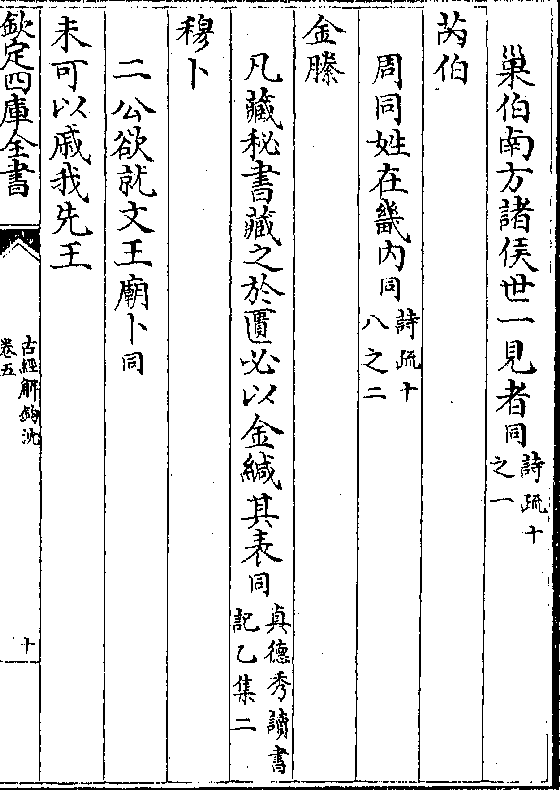 巢伯南方諸侯世一見者同詩疏十之一
芮伯
周同姓在畿内同詩疏十八之二
金縢
凡藏秘書藏之於匱必以金緘其表同真德秀讀書記乙集二
穆卜
二公欲就文王廟卜同
未可以戚我先王
欽定四庫全書
古經解鉤沈
卷五
十